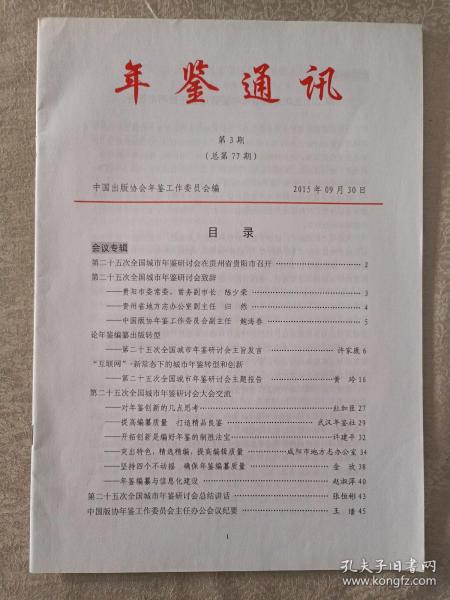 年鉴通讯
第3期
(总第77期)
中国出版协会年鉴工作委员会编 2015年09月30日
目 录
会议专辑
第二十五次全国城市年鉴研讨会在贵州省贵阳市召开 ………… 2
第二十五次全国城市年鉴研讨会致辞
——贵阳市委常委、常务副市长 陈少荣 ………… 3
——贵州省地方志办公室副主任 归 然 ………… 4
——中国版协年鉴工作委员会副主任 鲍海春 ………… 5
论年鉴编纂出版转型
——第二十五次全国城市年鉴研讨会主旨发言 ………… 许家康 6
“互联网”+新常态下的城市年鉴转型和创新
——第二十五次全国城市年鉴研讨会主题报告 ………… 黄 玲 16
第二十五次全国城市年鉴研讨会大会交流
——对年鉴创新的几点思考 ………… 杜加臣 27
——提高编纂质量 打造精品良鉴 ………… 武汉年鉴社 29
——开拓创新是编好年鉴的制胜法宝 ………… 许建平 32
——突出特色,精选精编,提高编辑质量 ………… 咸阳市地方志办公室 34
——坚持四个不动摇 确保年鉴编纂质量 ………… 金 玫 38
——年鉴编纂与信息化建设 ………… 赵淑萍 40
第二十五次全国城市年鉴研讨会总结讲话 ………… 张恒彬 43
中国版协年鉴工作委员会主任办公会议纪要 ………… 王 45
1
孔夫子旧书网
www.kongfz.com